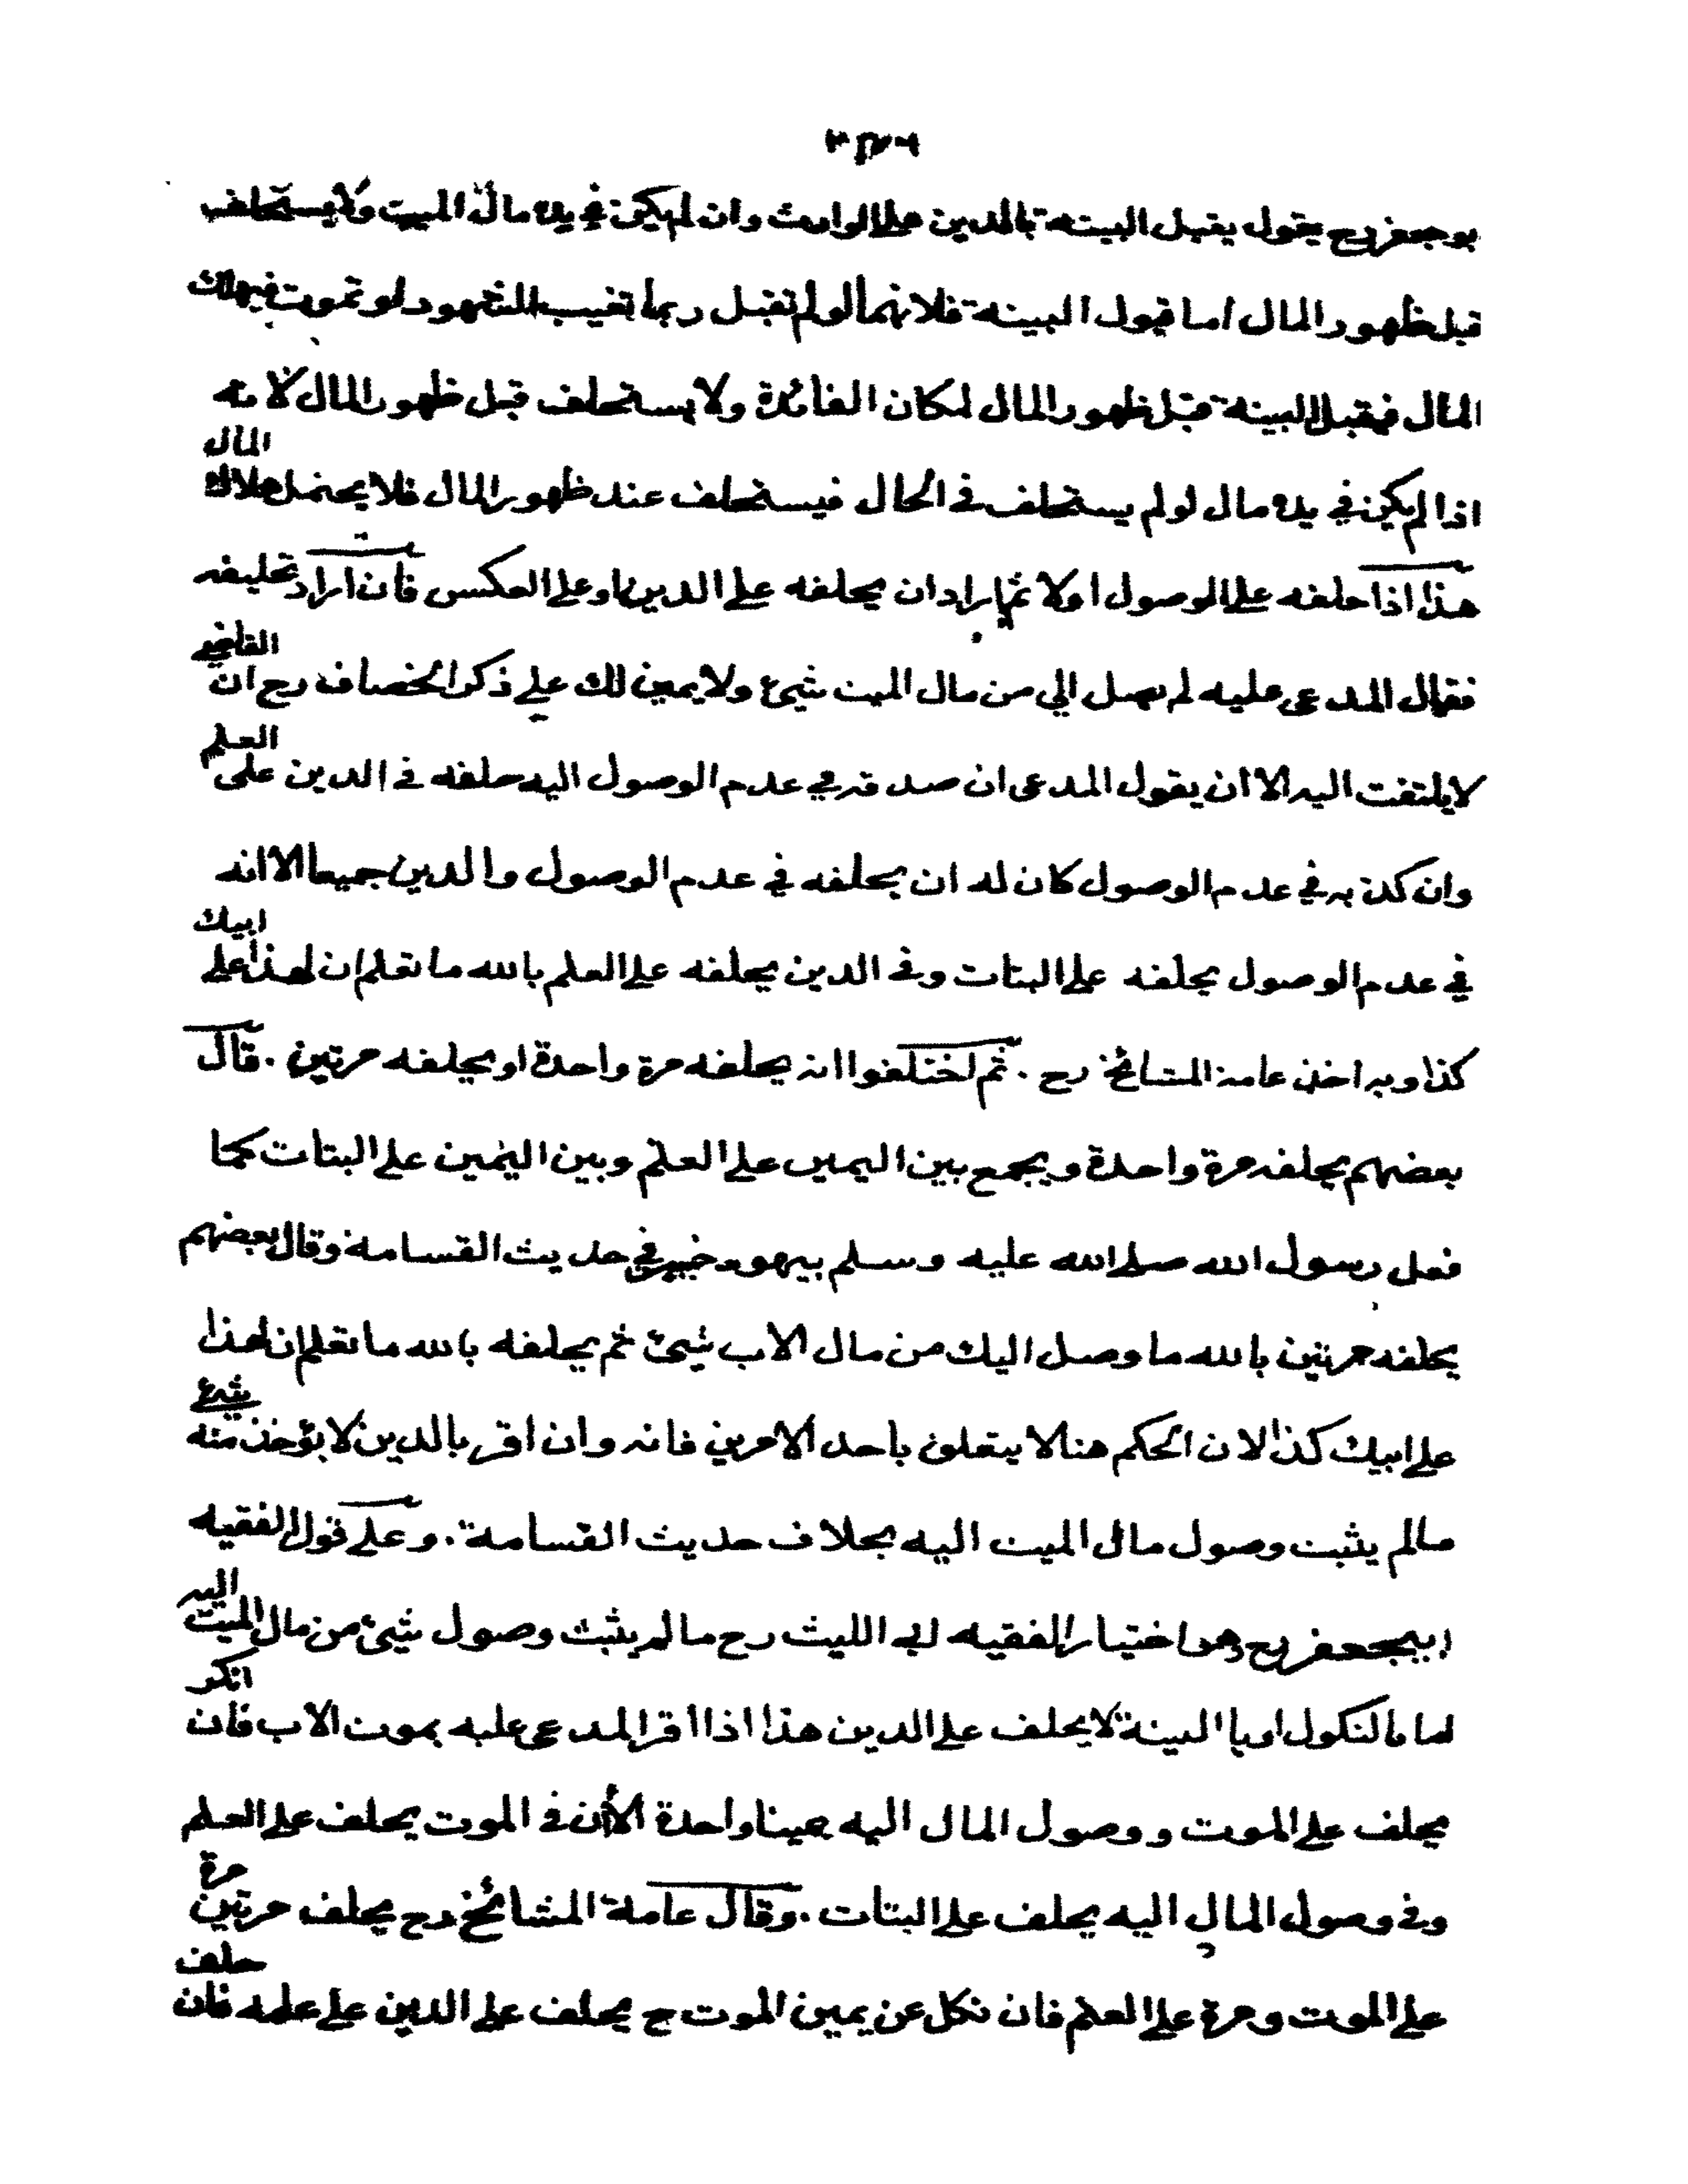 بوجعفر رح يقول يقبل البينة بالدين على الوارث وان لم يكن في يده مال الميت ولا يستحلف
قبل ظهور المال اما قبول البينة فلانهما لو لم تقبل ربما تغيب الشهود او تموت فيهلك
المال فيقبل البينة قبل ظهور المال لمكان الفائدة ولا يستحلف قبل ظهور المال لانه
اذا لم يكن في يده مال لو لم يستحلف في الحال فيستحلف عند ظهور المال فلا يحتمل هلاك المال
هذا اذا حلفه على الوصول اولا ثم اراد ان يحلفه على الدين او على العكس فان اراد تحليفه
فقال المدعى عليه لم يصل الي من مال الميت شيئ ولا يمين لك على ذكر الخصاف رح ان القاضي
لا يلتفت اليه الا ان يقول المدعى ان صدقه في عدم الوصول اليه حلفه في الدين على العلم
وان كذبه في عدم الوصول كان له ان يحلفه في عدم الوصول والدين جميعا الا انه
في عدم الوصول يحلفه على البتات وفي الدين يحلفه على العلم بالله ما تعلم ان لهذا على ابيك
كذا وبه اخذ عامة المشائخ رح . ثم اختلفوا انه يحلفه مرة واحدة او يحلفه مرتين . قال
بعضهم يحلفه مرة واحدة ويجمع بين اليمين على العلم وبين اليمين على البتات كما
فعل رسول الله صلى الله عليه وسلم بيهود خيبر في حديث القسامة وقال بعضهم
يحلفه مرتين بالله ما وصل اليك من مال الاب شيئ ثم يحلفه بالله ما تعلم ان لهذا
على ابيك كذا لان الحكم هنا لا يتعلق باحد الامرين فانه وان اقر بالدين لا يؤخذ منه شيئ
مالم يثبت وصول مال الميت اليه بخلاف حديث القسامة . وعلى قول الفقيه
ابي جعفر رح وهو اختيار الفقيه ابي الليث رح ما لم يثبت وصول شيئ من مال الميت اليه
اما بالنكول او بالبينة لا يحلف على الدين هذا اذا اقر المدعى عليه بموت الاب فان انكر
يحلف على الموت ووصول المال اليه يمينا واحدة الا ان في الموت يحلف على العلم
وفي وصول المال اليه يحلف على البتات . وقال عامة المشائخ رح يحلف مرتين مرة
على الموت ومرة على العلم فان نكل عن يمين الموت ح يحلف على الدين على علمه فان حلف